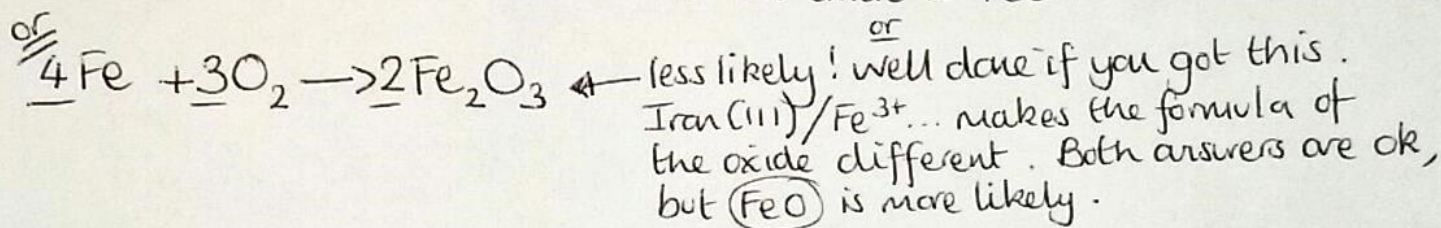 or
4Fe + 3O₂ —> 2Fe₂O₃ ← less likely! or well done if you got this.
Iron(III)/Fe³⁺... makes the formula of
the oxide different. Both answers are ok,
but FeO is more likely.